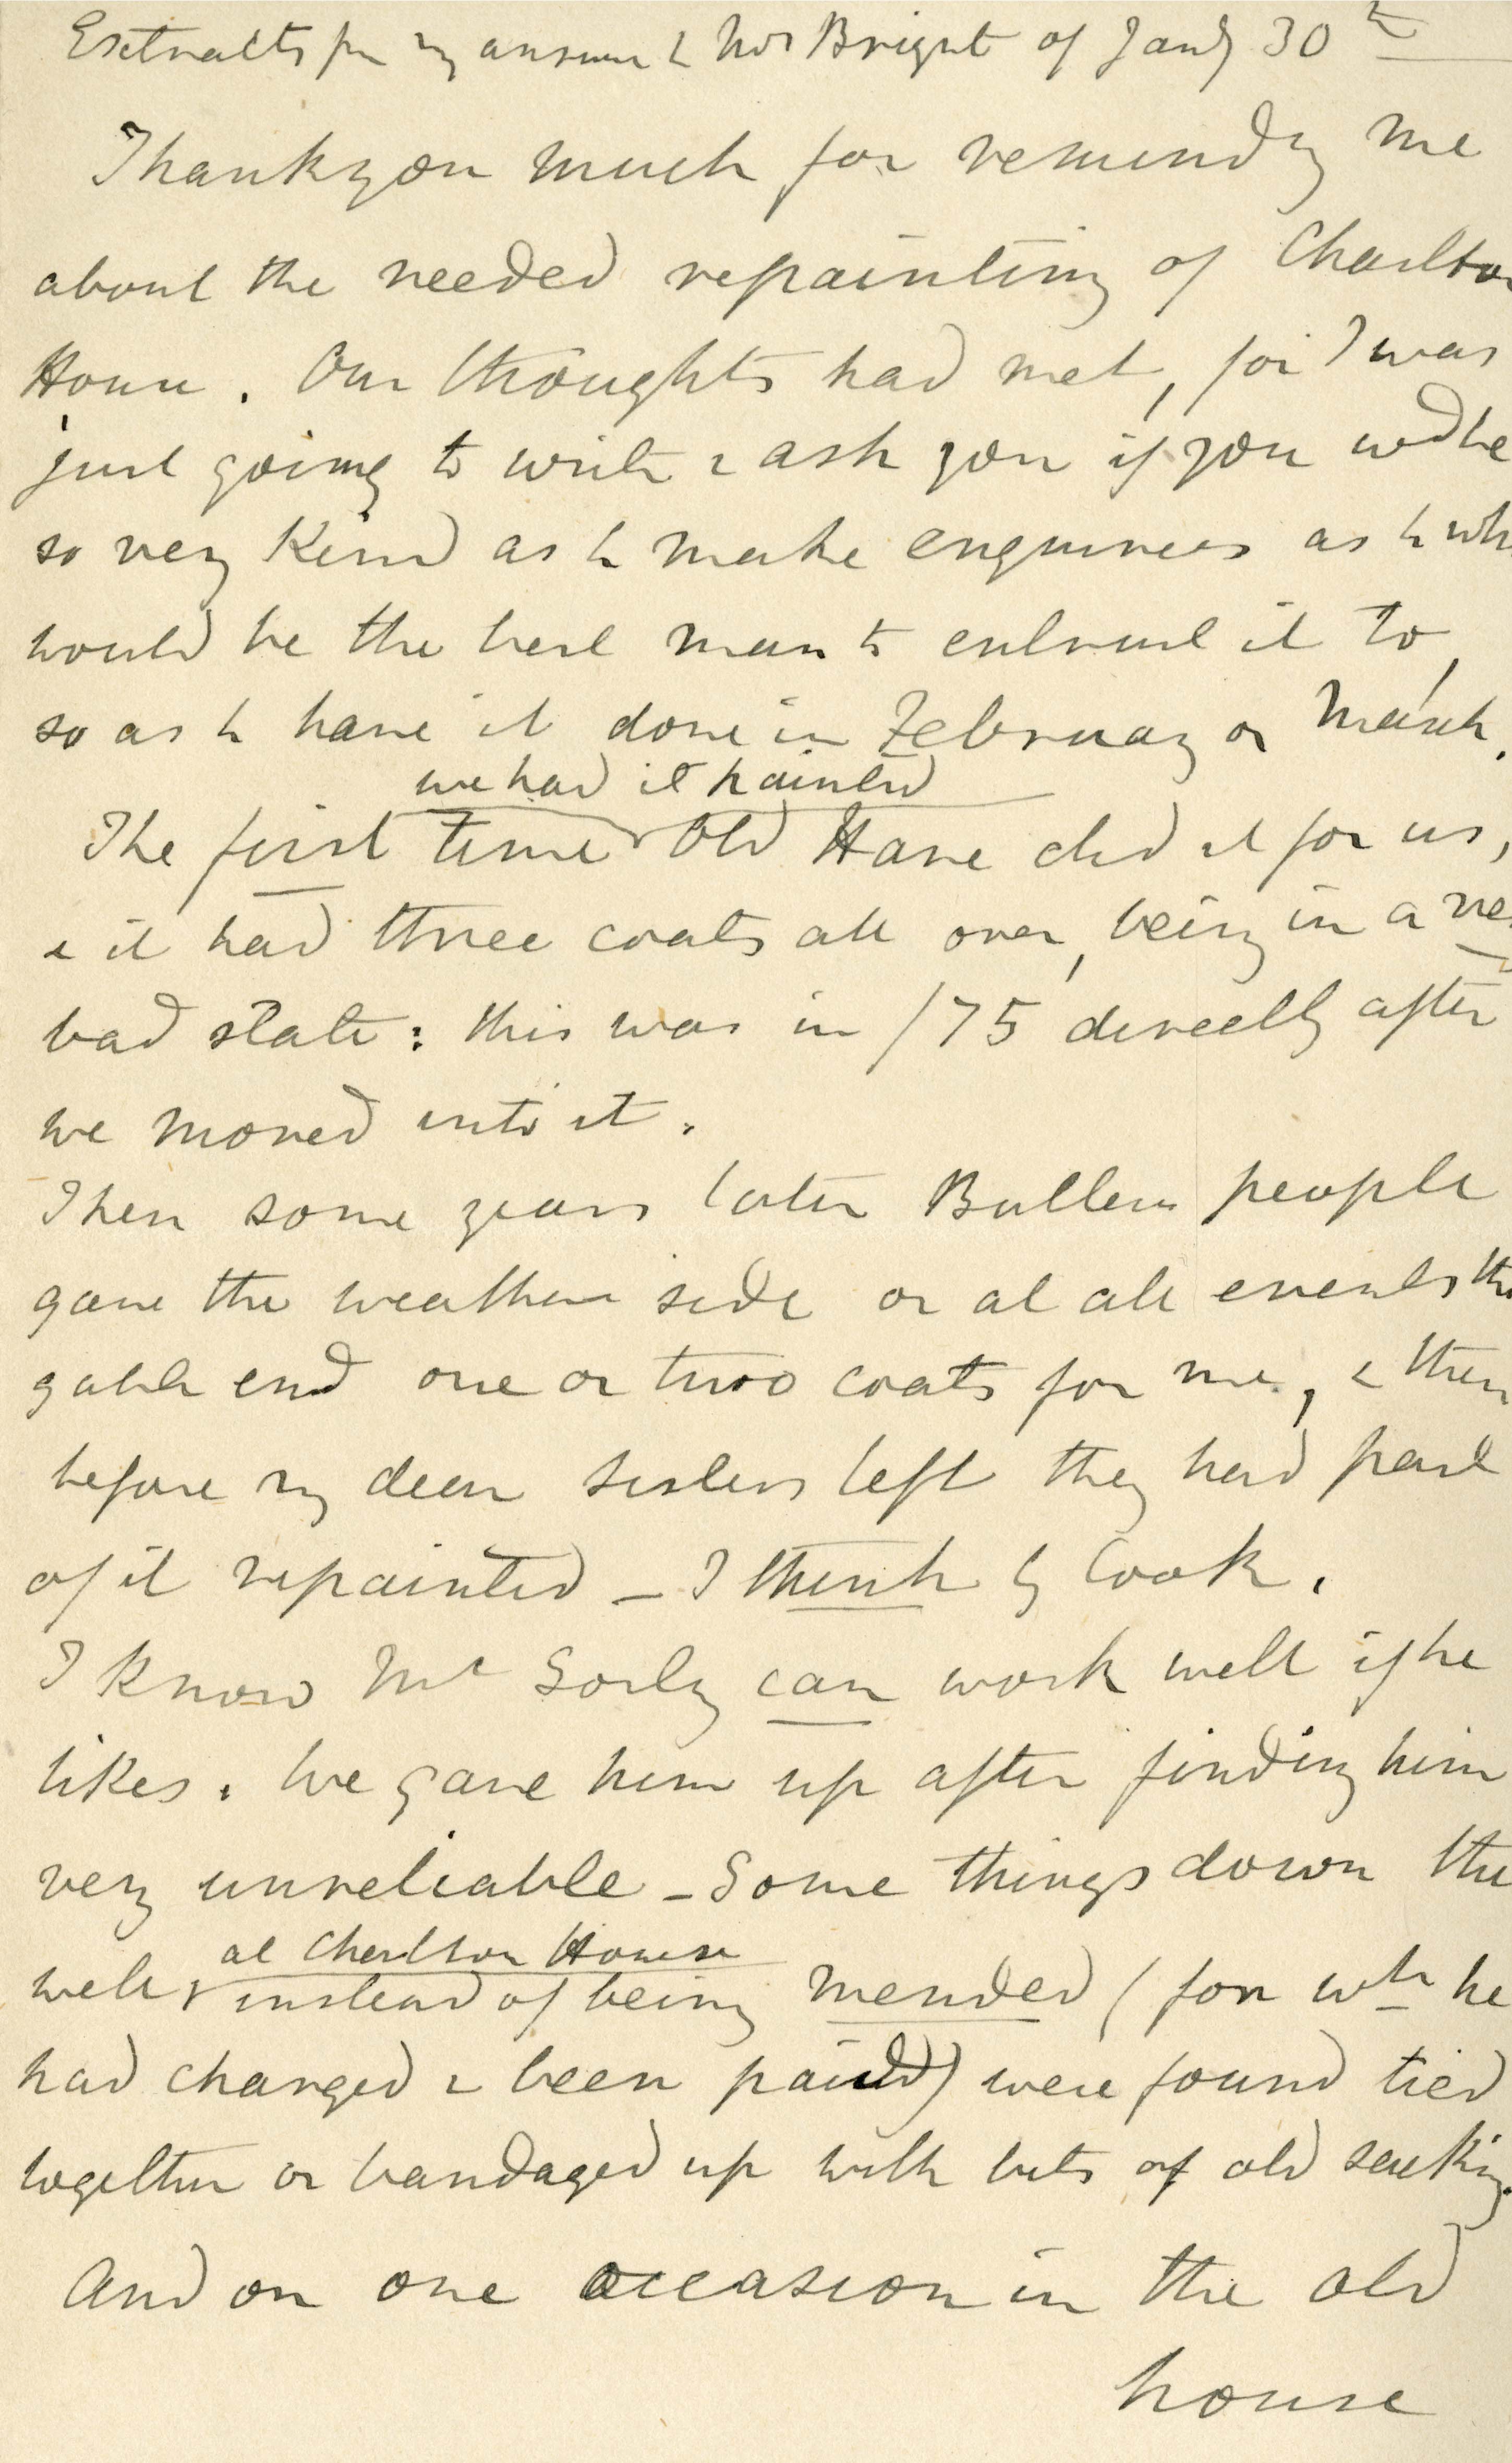 Extracts fm my answer to Mrs Bright of Jany 30th
Thank you much for reminding me
about the needed repainting of Charlton
House. Our thoughts had met, for I was
just going to write & ask you if you wd be
so very kind as to make enquiries as to wh
would be the best man to entrust it to,
so as to have it done in February or March.
we had it painted
The first time Old Hare did it for us,
& it had three coats all over, being in a ve
bad state: this was in /75 directly after
we moved into it.
Then some years later Bullens people
gave the weather side or at all events the
gable end one or two coats for me, & then
before my dear sisters left they had part
of it repainted – I think by Cook.
I know Mc Sorly can work well if he
likes. We gave him up after finding him
very unreliable – Some things down the
at Charlton House
well instead of being mended (for wh he
had charged & been paid) were found tied
together or bandaged up with bits of old sacking.
And on one occasion in the old
house